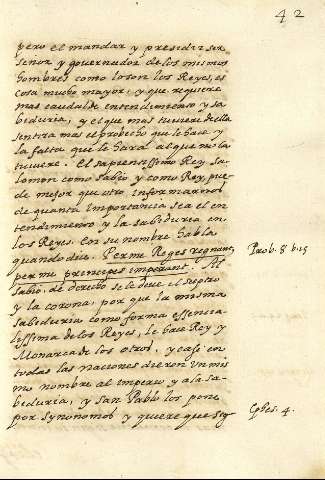 42
pero el mandar y presidir ser
señor y governador de los mismos
hombres como loson los Reyes, es
cosa mucho mayor, y que requiere
mas caudal de entendimiento y sa-
beduria, y el que mas tuviere della
sentira mas el probecho que le haze y
la falta que le hara al que no la
tuviere. El sapientissimo Rey Sa-
lomon como Sabio y como Rey, pue-
de mejor que otro informarnos
de quanta importancia sea el en
tendimiento y la sabeduria en
los Reyes. En su nombre habla
quando dize. Per me Reges regnant,
per me principes imperant. Al
Prob. 8 b. 15
sabio de derecho se le deve el sceptro
y la corona, por que la misma
sabeduria como forma essencia-
lissima de los Reyes, le haze Rey y
Monarca de los otros, y casi en
todas las naciones dieron un mis
mo nombre al imperio y a la sa-
beduria, y san Pablo los pone
por synonomos y quiere que sig
Ephes. 4.